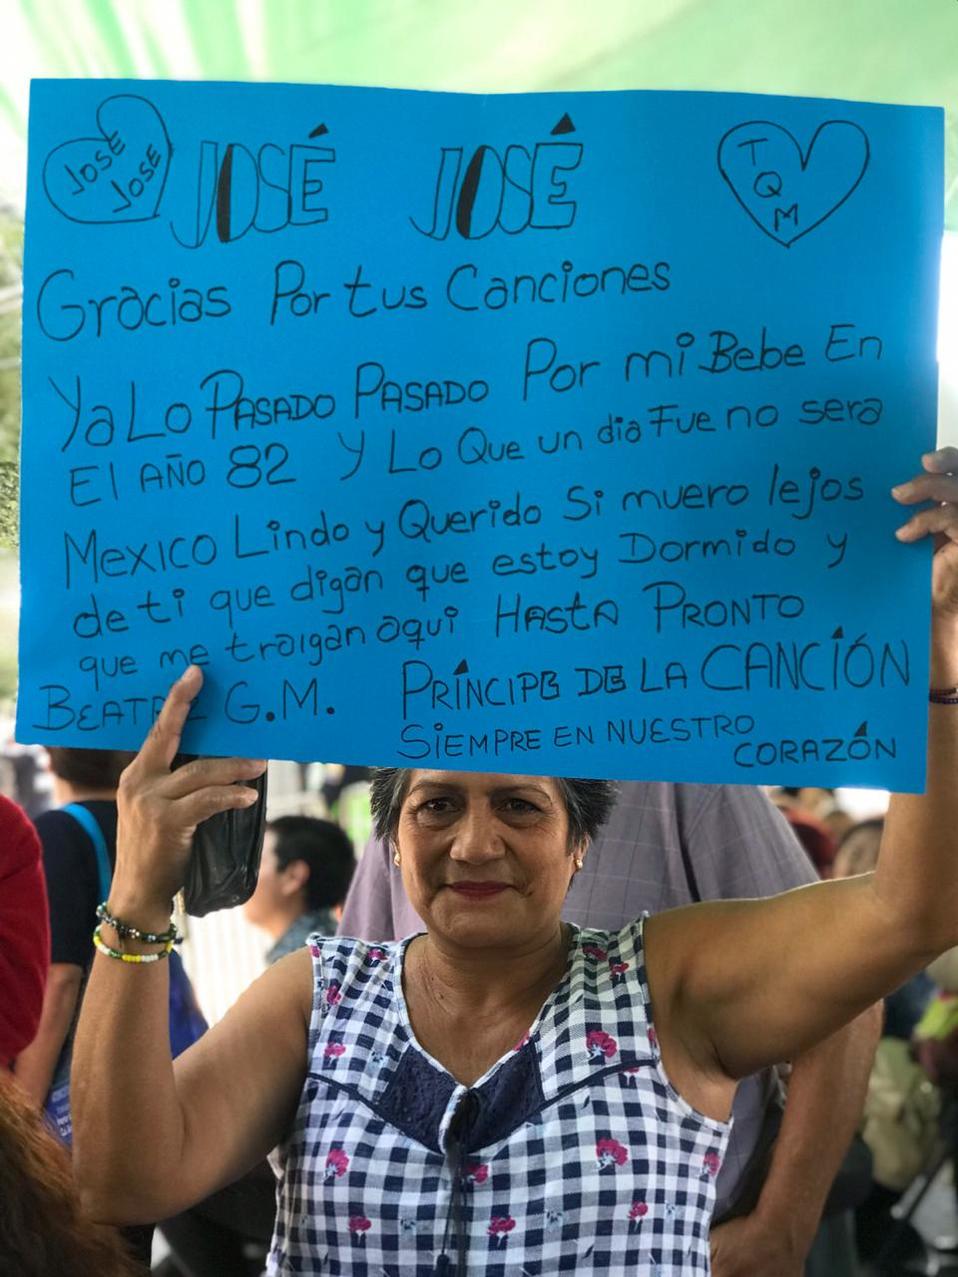 JOSE JOSE
JOSÉ JOSÉ
T Q M
Gracias Por tus Canciones
Ya Lo PASADO PASADO Por mi Bebe En
El AÑO 82 Y Lo Que un dia Fue no sera
Mexico Lindo y Querido Si muero lejos
de ti que digan que estoy Dormido y
que me traigan aqui HASTA PRONTO
G.M. PRÍNCIPE DE LA CANCIÓN
SIEMPRE EN NUESTRO
CORAZÓN